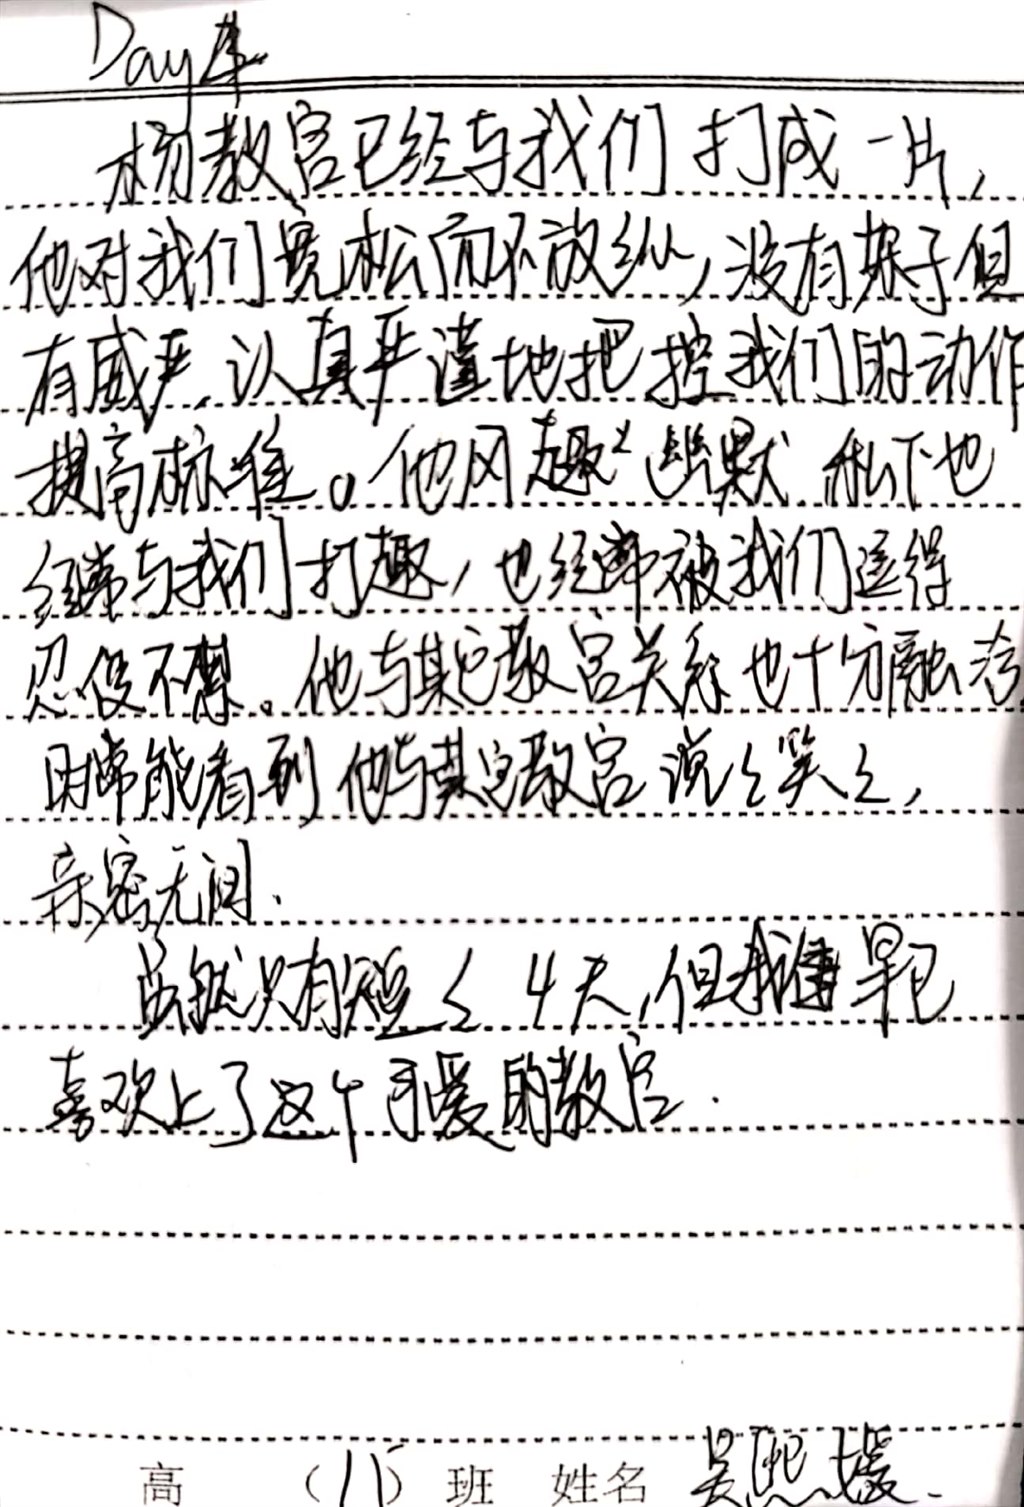 Day4
杨教官已经与我们打成一片，
他对我们宽松而不放纵，没有架子但
有威严，认真严谨地把控我们的动作
提高标准。他风趣又幽默，私下也
经常与我们打趣，也经常被我们逗得
忍俊不禁。他与其它教官关系也十分融洽
时常能看到他与其它教官说々笑々，
亲密无间.
虽然只有短々4天，但我们早已
喜欢上了这个可爱的教官.
高 （11）班 姓名 吴熙媛.